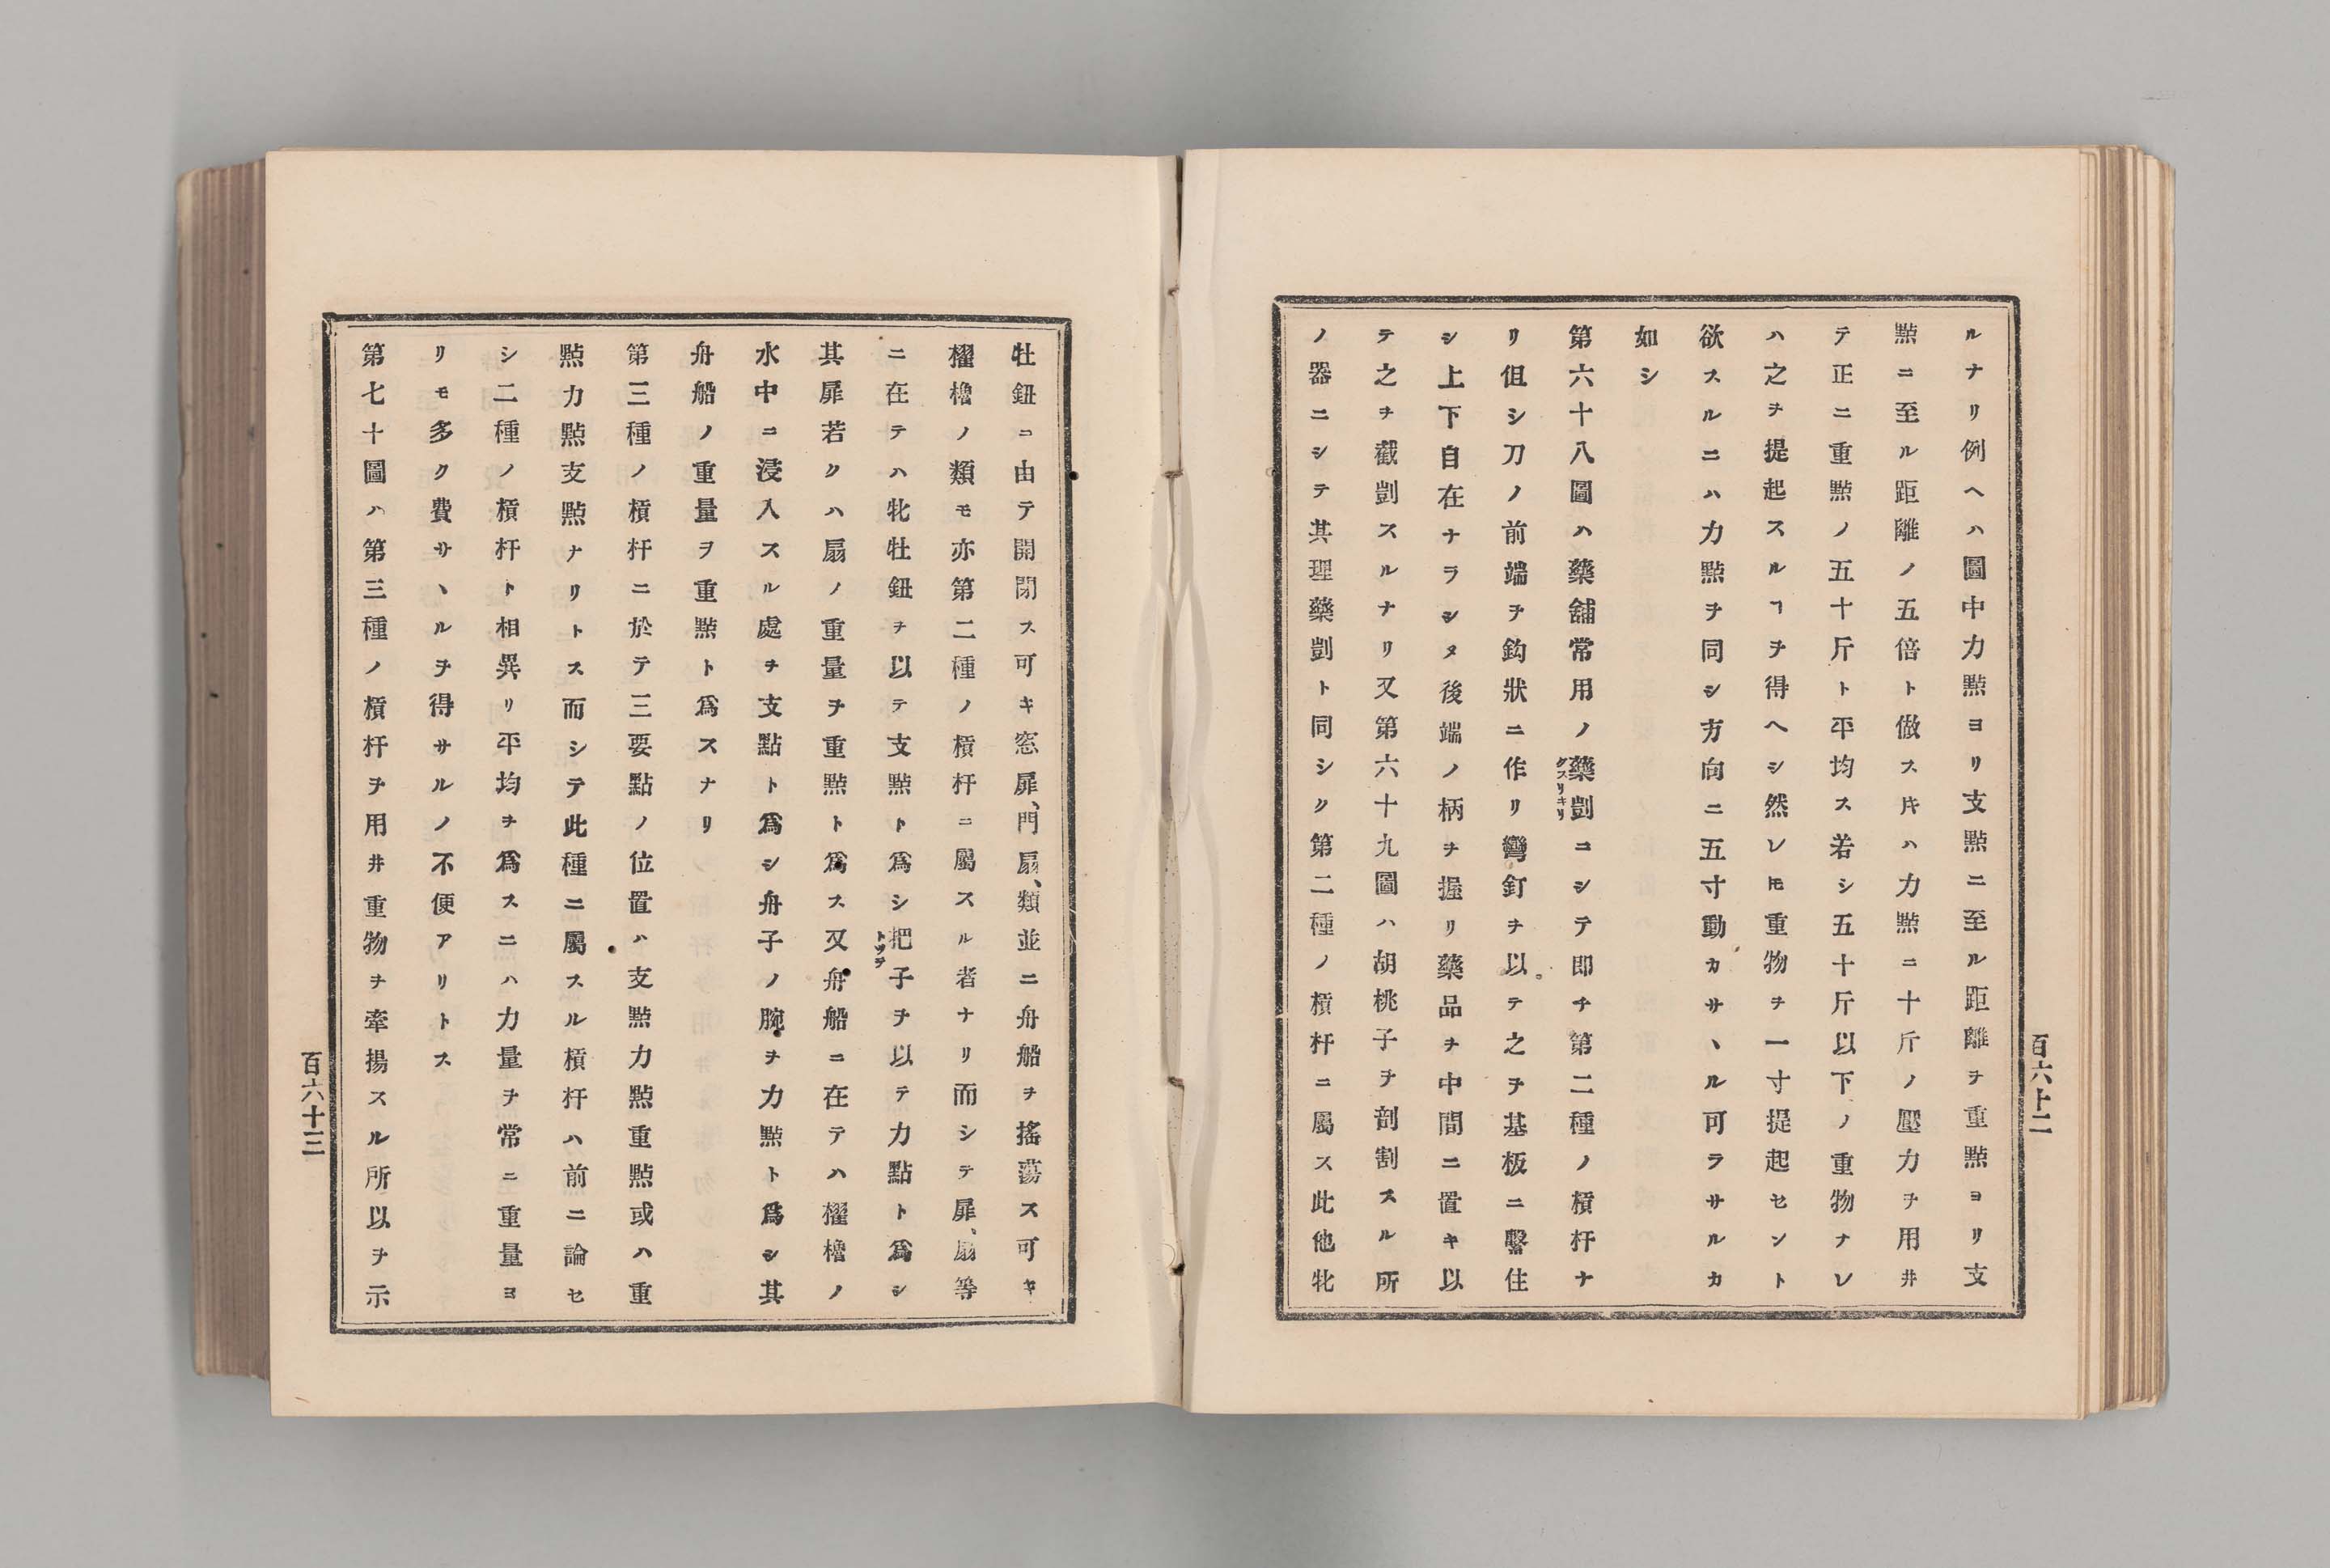 ルナリ例ヘハ圖中力㸃ヨリ支㸃ニ至ル距離ヲ重㸃ヨリ支
㸃ニ至ル距離ノ五倍ト倣ス片ハ力㸃ニ十斤ノ壓力ヲ用井
テ正ニ重㸃ノ五十斤ト平均ス若シ五十斤以下ノ重物ナレ
ハ之ヲ提起スルヿヲ得ヘシ然レ𪜈重物ヲ一寸提起セント
欲スルニハ力㸃ヲ同シ方向ニ五寸動カサヽル可ラサルカ
如シ
第六十八圖ハ藥舖常用ノ藥剴クスリキリニシテ即チ第二種ノ槓杆ナ
リ但シ刀ノ前端ヲ鈎狀ニ作リ彎釘ヲ以テ之ヲ基板ニ鑿住
シ上下自在ナラシメ後端ノ柄ヲ握リ藥品ヲ中間ニ置キ以
テ之ヲ截剴スルナリ又第六十九圖ハ胡桃子ヲ剖割スル所
ノ器ニシテ其理藥剴ト同シク第二種ノ槓杆ニ屬ス此他牝
百六十二
牡鈕ニ由テ開閉ス可キ窓扉、門扇、類並ニ舟船ヲ搖蕩ス可キ
櫂櫓ノ類モ亦第二種ノ槓杆ニ屬スル者ナリ而シテ扉、扇等
ニ在テハ牝牡鈕ヲ以テ支㸃ト爲シ把子トツテヲ以テ力點ト爲シ
其扉若クハ扇ノ重量ヲ重㸃ト爲ス又舟船ニ在テハ櫂櫓ノ
水中ニ浸入スル處ヲ支點ト爲シ舟子ノ腕ヲ力㸃ト爲シ其
舟船ノ重量ヲ重㸃ト爲スナリ
第三種ノ槓杆ニ於テ三要點ノ位置ハ支㸃力㸃重㸃或ハ重
㸃力㸃支㸃ナリトス而シテ此種ニ屬スル槓杆ハ前ニ論セ
シ二種ノ槓杆ト相異リ平均ヲ爲スニハ力量ヲ常ニ重量ヨ
リモ多ク費サヽルヲ得サルノ不便アリトス
第七十圖ハ第三種ノ槓杆ヲ用井重物ヲ牽揚スル所以ヲ示
百六十三